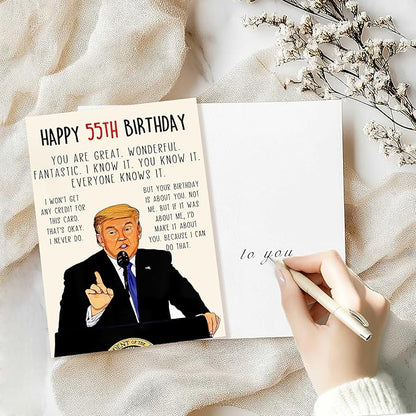 HAPPY 55TH BIRTHDAY
YOU ARE GREAT. WONDERFUL.
FANTASTIC. I KNOW IT. YOU KNOW IT.
EVERYONE KNOWS IT.
I WON'T GET
ANY CREDIT FOR
THIS CARD.
THAT'S OKAY.
I NEVER DO.
BUT YOUR BIRTHDAY
IS ABOUT YOU, NOT
ME. BUT IF IT WAS
ABOUT ME, I'D
MAKE IT ABOUT
YOU. BECAUSE I CAN
DO THAT.
to you